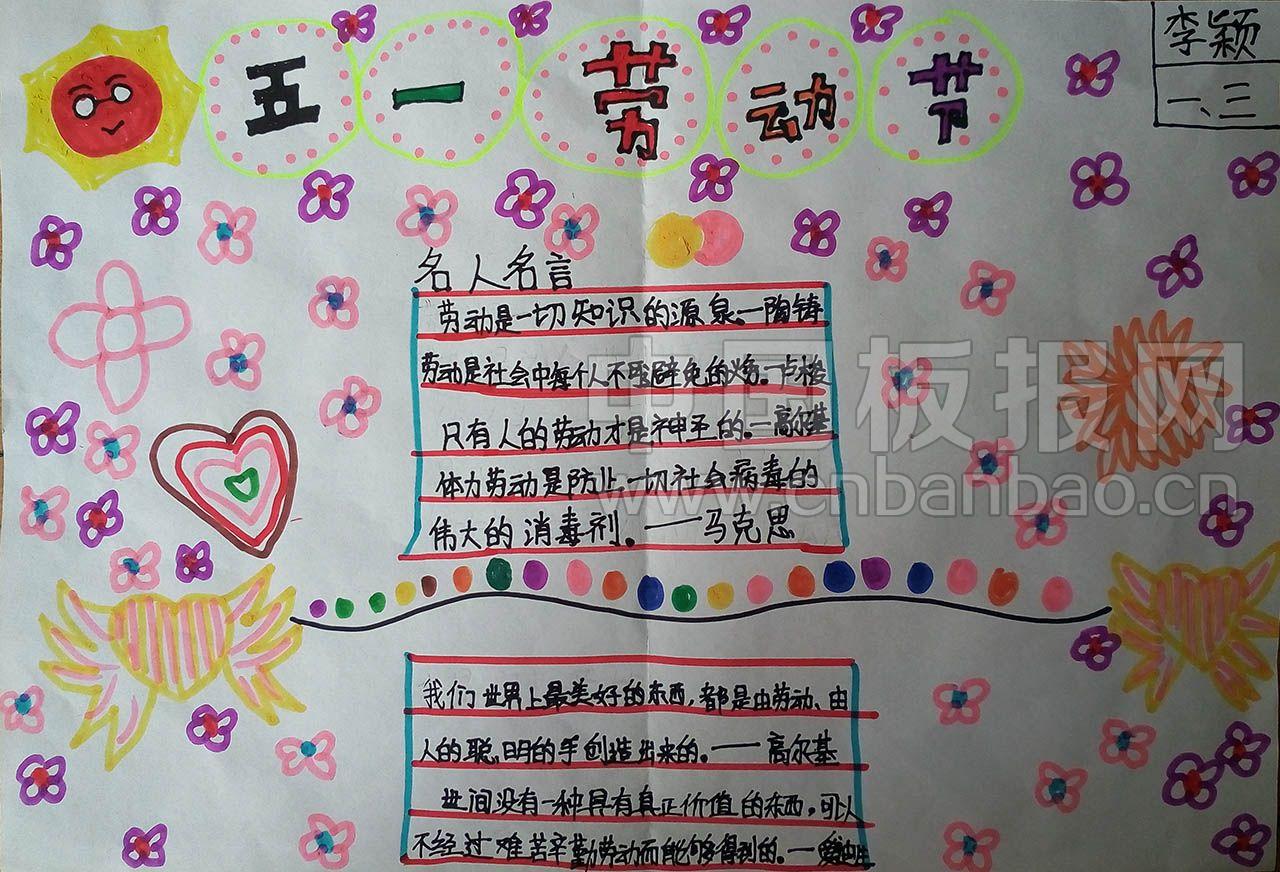 五一劳动节
李颖
一、三
名人名言
劳动是一切知识的源泉。—陶铸
劳动是社会中每个人不可避免的义务。—卢梭
只有人的劳动才是神圣的。—高尔基
体力劳动是防止一切社会病毒的
伟大的消毒剂。——马克思
我们世界上最美好的东西，都是由劳动、由
人的聪明的手创造出来的。——高尔基
世间没有一种具有真正价值的东西，可以
不经过难苦辛勤劳动而能够得到的。—爱迪生
中国板报网
www.cnbanbao.cn